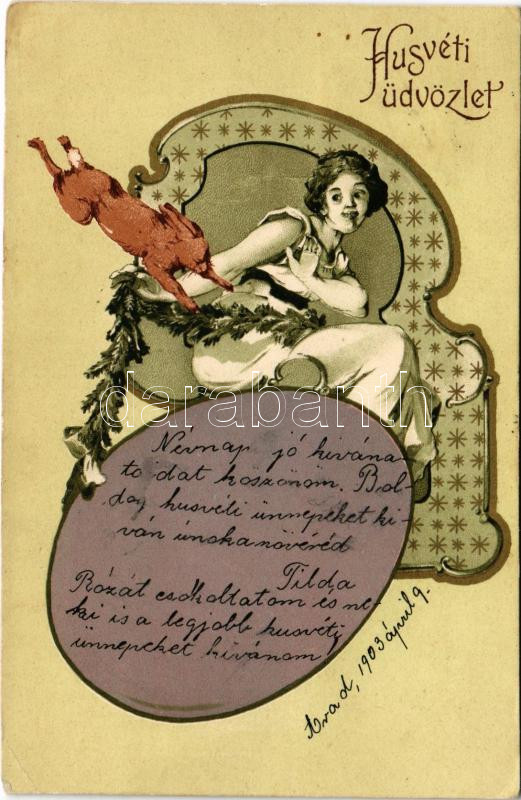 Husvéti
üdvözlet
darabanth
Nevnap jó kivána-
to dat koszonom. Bol-
dog husvéti ünnepeket ki-
ván únokanővéred
Tilda
Rózát csókoltatom és ne-
ki is a legjobb husvéti
ünnepeket kivánom!
Arad, 1903 ápril 9.